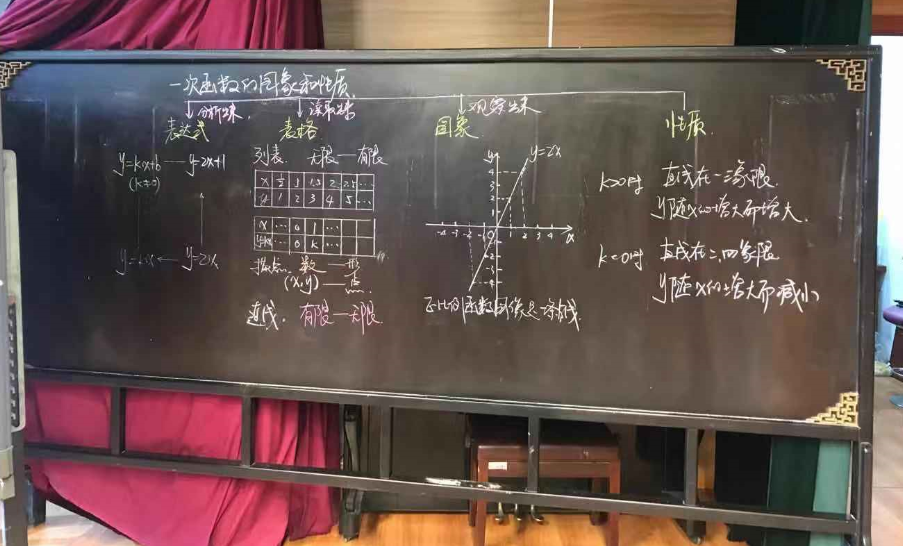 一次函数的图象和性质
分析法 读取法 观察法
表达式 表格 图象 性质
y=kx+b — y=2x+1
(k≠0)
y=kx ← y=2x
列表 无限—有限
x ½ 1 1.5 2 2.5 …
y 1 2 3 4 5 …
x … 0 1 …
y=kx … 0 k …
描点. 数 — 形
(x,y) — 点
连线. 有限—无限
y=2x
正比例函数图像是一条直线
k>0时 直线在一、三象限.
y随x的增大而增大.
k<0时 直线在二、四象限
y随x的增大而减小